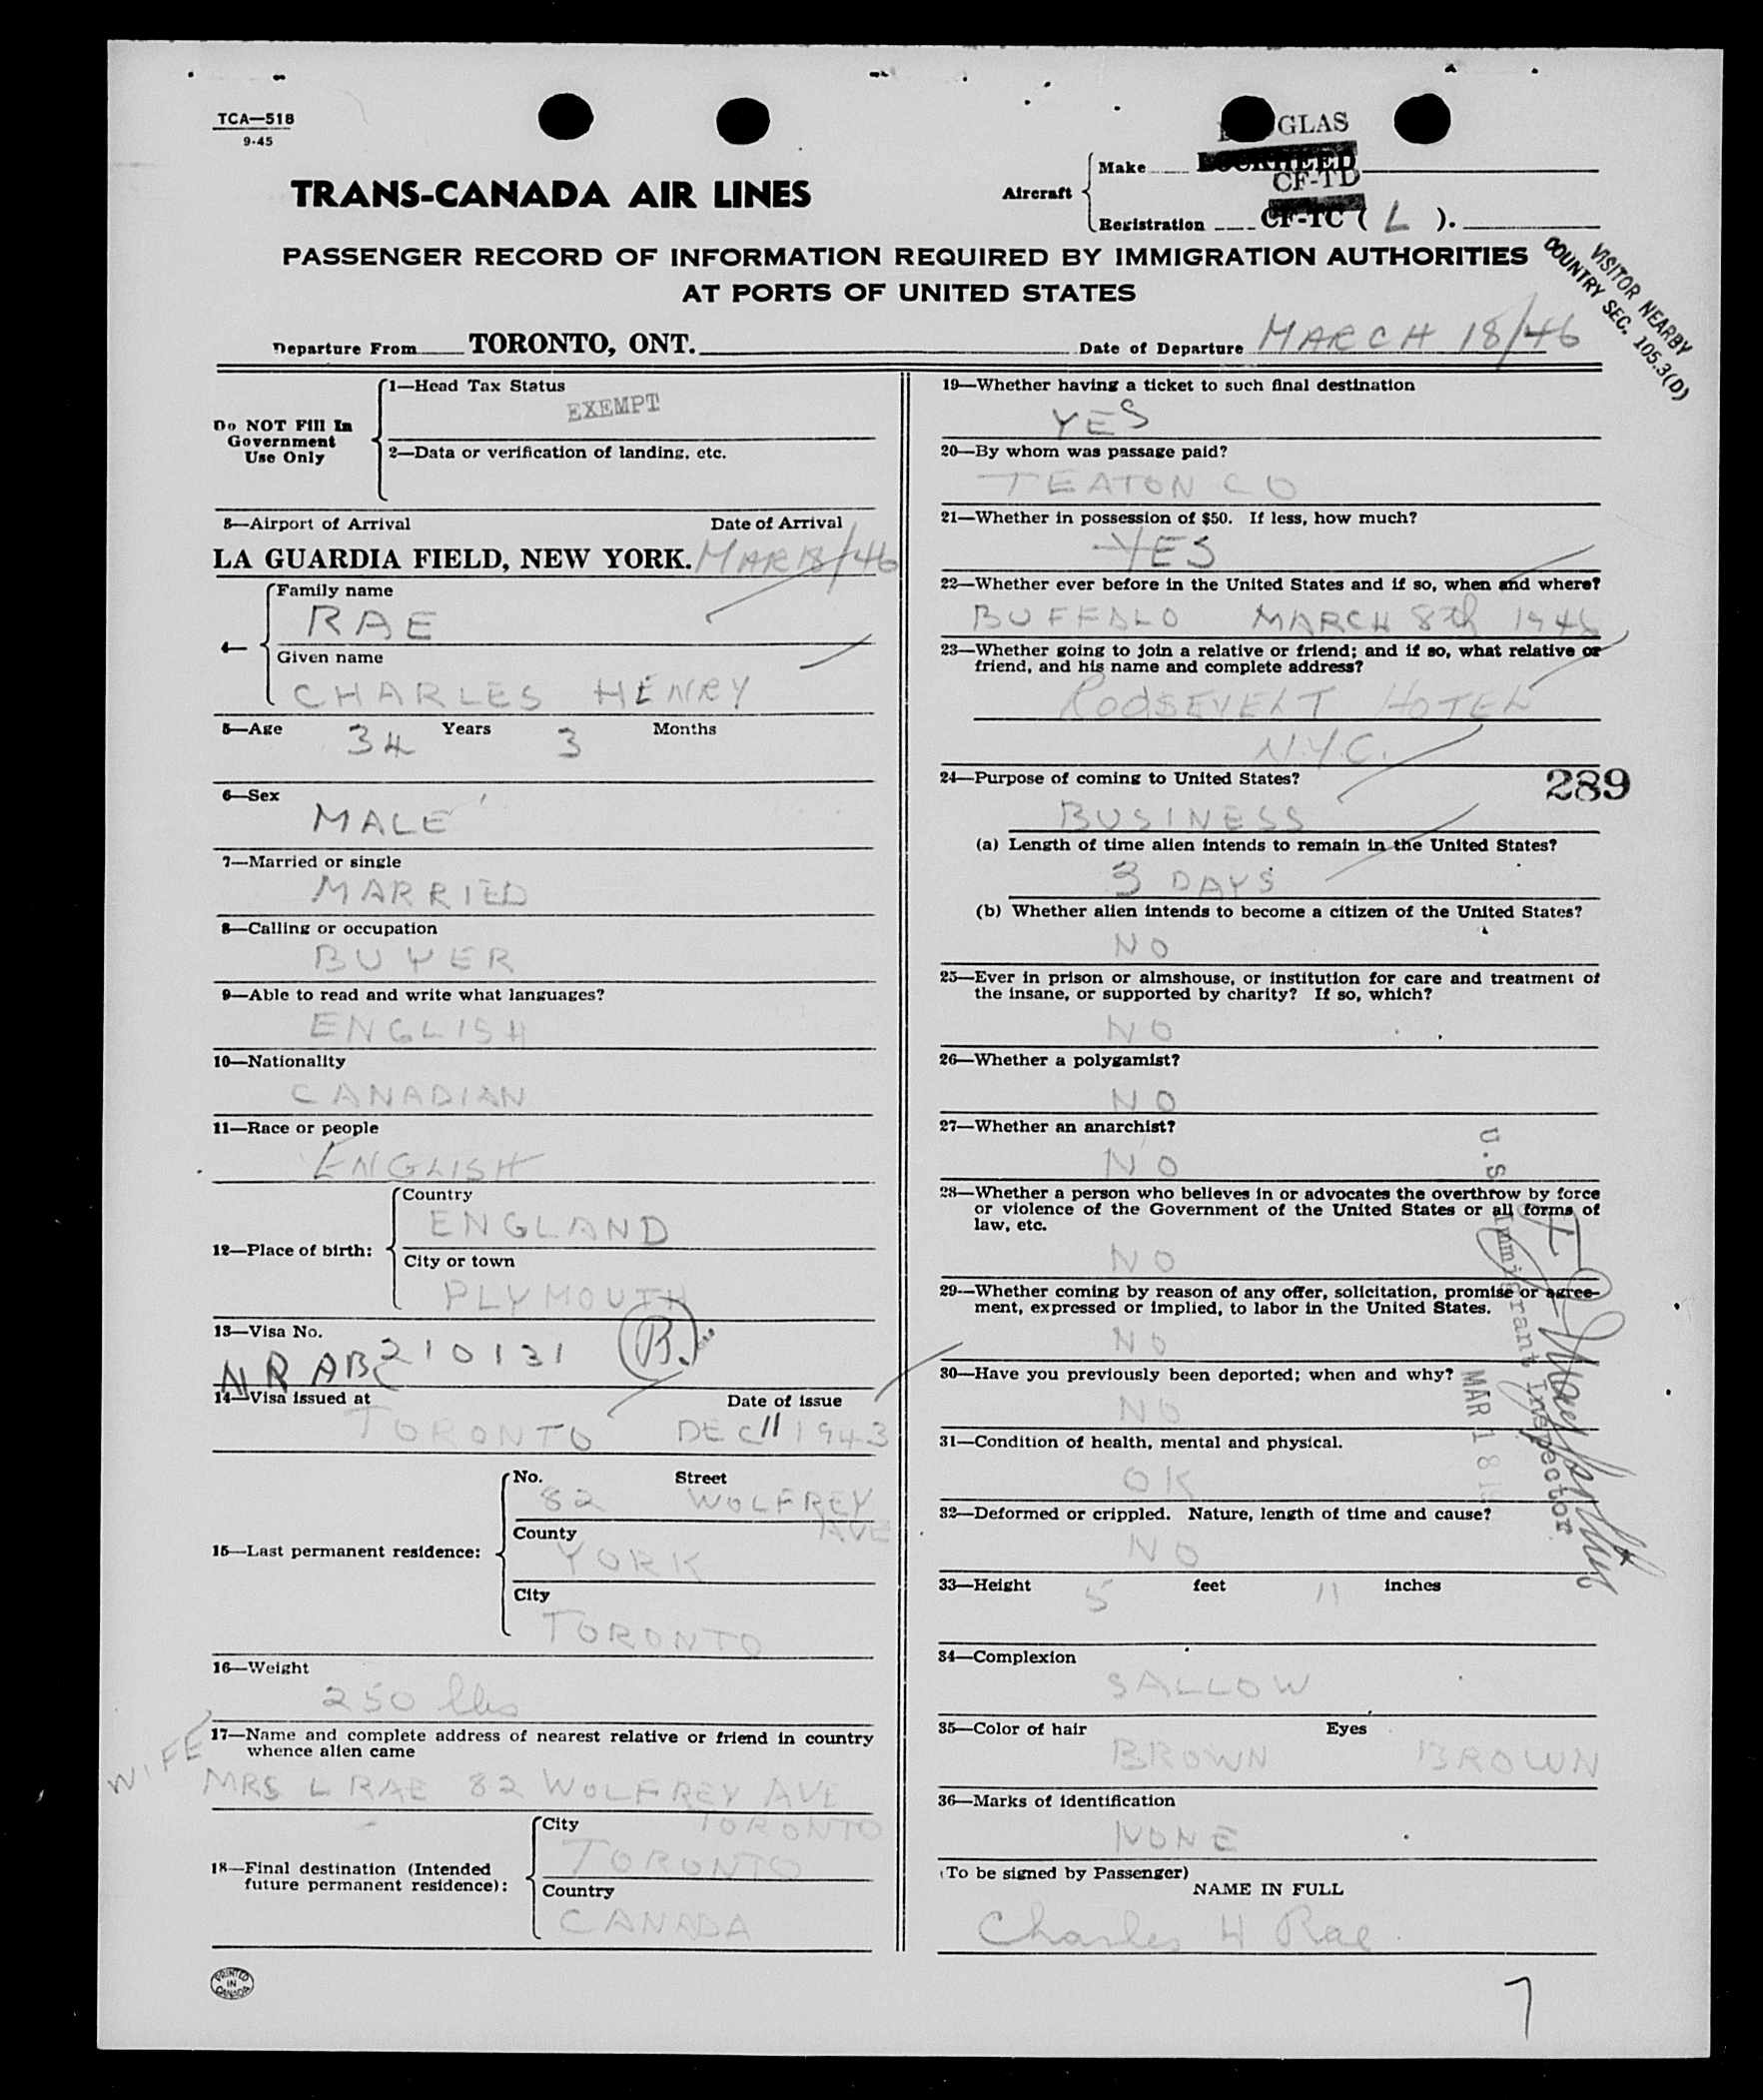 TCA—518
9-45
GLAS
TRANS-CANADA AIR LINES
Aircraft
Make LOCKHEED
CF-TD
Registration CF-TC ( L ).
PASSENGER RECORD OF INFORMATION REQUIRED BY IMMIGRATION AUTHORITIES
AT PORTS OF UNITED STATES
VISITOR NEARBY
COUNTRY SEC. 105.3(D)
Departure From TORONTO, ONT. Date of Departure MARCH 18/46
Do NOT Fill In
Government
Use Only
1—Head Tax Status
EXEMPT
2—Data or verification of landing, etc.
3—Airport of Arrival Date of Arrival
LA GUARDIA FIELD, NEW YORK. MAR 18/46
4—
Family name
RAE
Given name
CHARLES HENRY
5—Age 34 Years 3 Months
6—Sex
MALE
7—Married or single
MARRIED
8—Calling or occupation
BUYER
9—Able to read and write what languages?
ENGLISH
10—Nationality
CANADIAN
11—Race or people
ENGLISH
12—Place of birth:
Country
ENGLAND
City or town
PLYMOUTH
13—Visa No.
NR ABC 210131 (B.)
14—Visa issued at Date of issue
TORONTO DEC 11 1943
15—Last permanent residence:
No. Street
82 WOLFREY
AVE
County
YORK
City
TORONTO
16—Weight
250 lbs
17—Name and complete address of nearest relative or friend in country
whence alien came
WIFE
MRS L RAE 82 WOLFREY AVE
TORONTO
18—Final destination (Intended
future permanent residence):
City
TORONTO
Country
CANADA
PRINTED
IN
CANADA
19—Whether having a ticket to such final destination
YES
20—By whom was passage paid?
T EATON CO
21—Whether in possession of $50. If less, how much?
YES
22—Whether ever before in the United States and if so, when and where?
BUFFALO MARCH 8th 1946
23—Whether going to join a relative or friend; and if so, what relative or
friend, and his name and complete address?
ROOSEVELT HOTEL
N.Y.C.
24—Purpose of coming to United States?
289
BUSINESS
(a) Length of time alien intends to remain in the United States?
3 DAYS
(b) Whether alien intends to become a citizen of the United States?
NO
25—Ever in prison or almshouse, or institution for care and treatment of
the insane, or supported by charity? If so, which?
NO
26—Whether a polygamist?
NO
27—Whether an anarchist?
NO
28—Whether a person who believes in or advocates the overthrow by force
or violence of the Government of the United States or all forms of
law, etc.
NO
29—Whether coming by reason of any offer, solicitation, promise or agree-
ment, expressed or implied, to labor in the United States.
NO
30—Have you previously been deported; when and why?
NO
31—Condition of health, mental and physical.
OK
32—Deformed or crippled. Nature, length of time and cause?
NO
33—Height 5 feet 11 inches
34—Complexion
SALLOW
35—Color of hair Eyes
BROWN BROWN
36—Marks of identification
NONE
(To be signed by Passenger)
NAME IN FULL
Charles H Rae
U.S. Immigrant Inspector
MAR 18
7